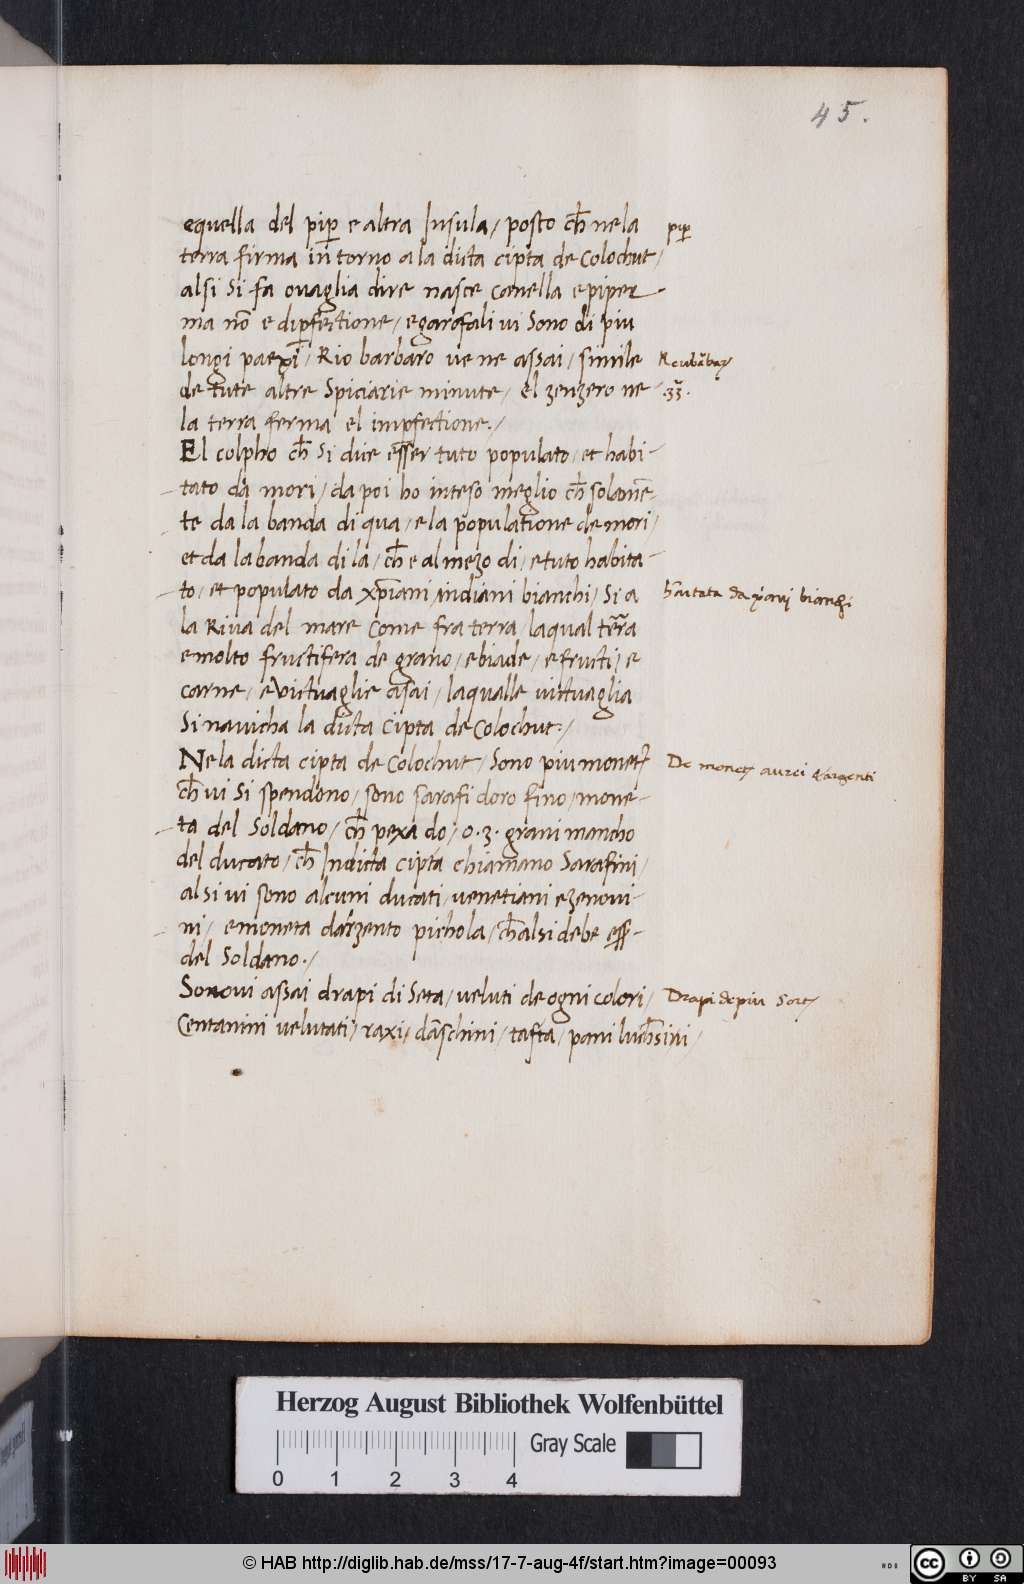 45.
equella del pip̱ e altra Insula / posto ch̄ nela
pip̱
terra firma in torno a la dicta cipta de Colochut /
alsi si fa ouaglia dire nasce canella e piper
ma nō e dip̱fectione / e garofali ui sono di piu
longi paexi / Rio barbaro ue ne assai / simile
de tute altre Spiciarie minute / el zenzero ne
.zz̄.
la terra ferma el imp̱fectione. /
El colpho ch̄ si dice esser tuto populato / et habi-
tato da mori / da poi ho inteso meglio ch̄ solamē-
te da la banda di qua / e la populatione de mori /
et da la banda di la / ch̄ e al mezo di / e tuto habita-
to / et populato da xp̄iani indiani bianchi / Si a
h̄autata da xp̄ani bianchi
la Riua del mare Come fra terra / laqual terra
e molto fructifera de grano / e biade / e fructi / e
carne / e victuaglie asai / laqualle uictuaglia
Si nauicha la dicta Cipta de Colochut. /
Nela dicta cipta de Colochut / Sono piu monet
De monet aurei & argenti
ch̄ ui Si spendono / sono sarafi doro fino / mone-
ta del Soldano / ch̄ pexa do / o .3. grani mancho
del ducato / ch̄ Indicta cipta chiamano Sarafini /
alsi ui sono alcuni ducati / venetiani e zenoui-
ni / e moneta darzento pichola / ch̄ alsi debe ess̄-
del Soldano. /
Sonoui assai drapi di Seta / veluti de ogni colori /
Drapi de piu Sort
Centanini velutati / raxi / dāschini / tafta / pani luch̄sini /
Herzog August Bibliothek Wolfenbüttel
Gray Scale
0 1 2 3 4
© HAB http://diglib.hab.de/mss/17-7-aug-4f/start.htm?image=00093
cc BY SA